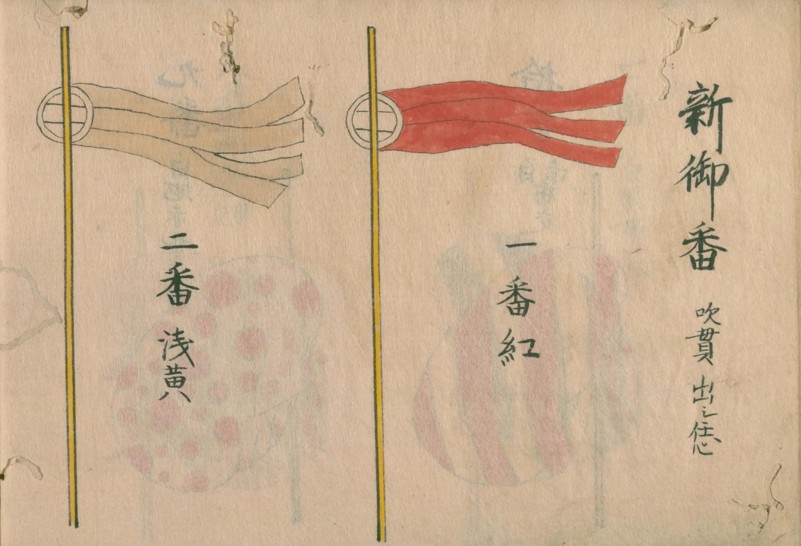 新御番 吹貫出シ
一番 紅
二番 浅黄